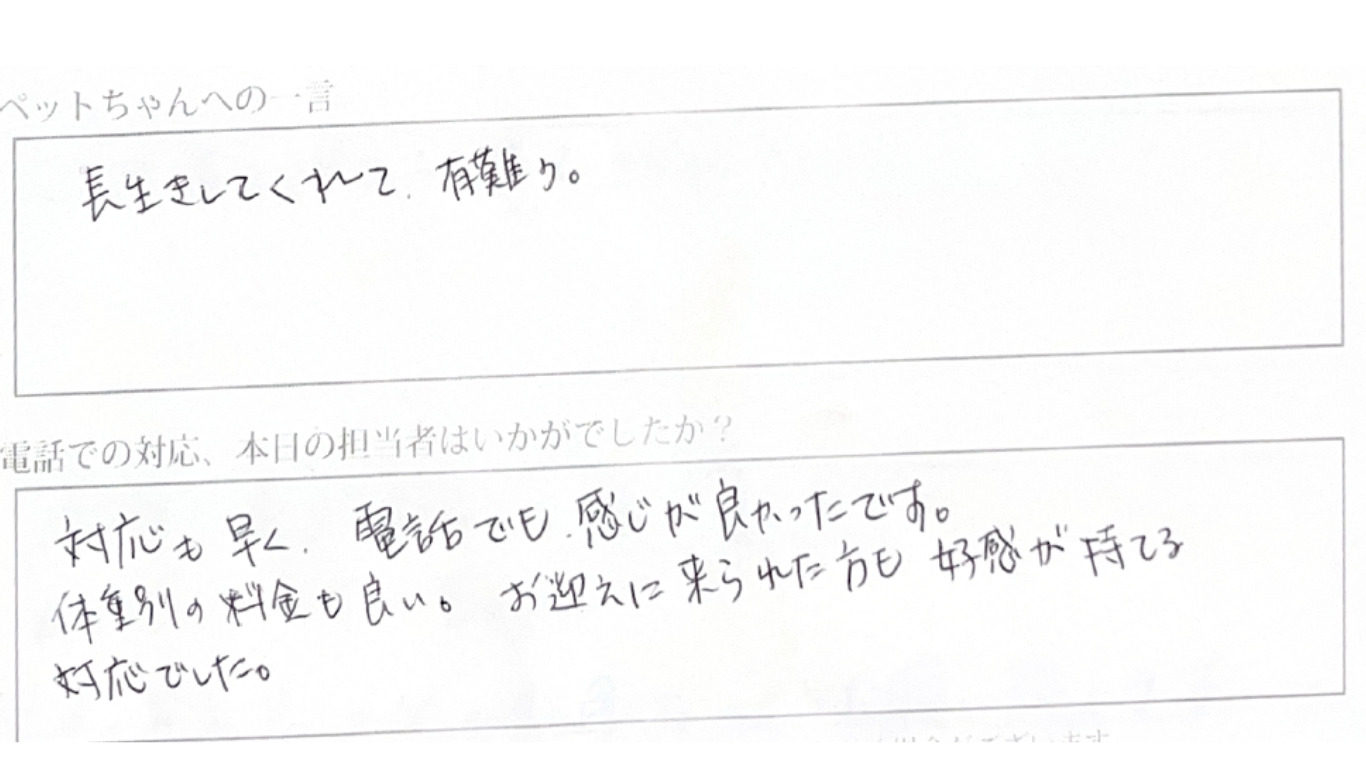 ペットちゃんへの一言
長生きしてくれて、有難う。
電話での対応、本日の担当者はいかがでしたか？
対応も早く、電話でも、感じが良かったです。
体重別の料金も良い。お迎えに来られた方も好感が持てる
対応でした。